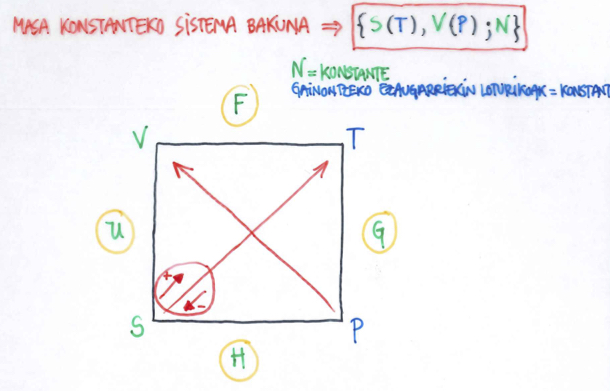 MASA KONSTANTEKO SISTEMA BAKUNA ⇒ {S(T), V(P); N}
N = KONSTANTE
GAINONTZEKO EZAUGARRIEKIN LOTURIKOAK = KONSTANT
F
V T
U G
+
-
S P
H